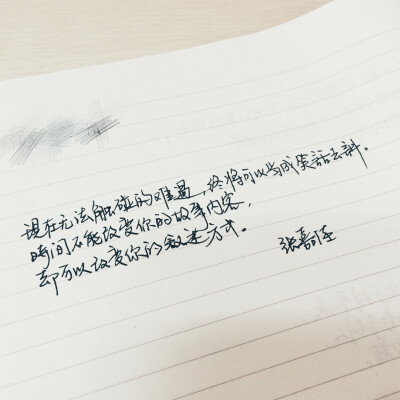 现在无法触碰的难过，终将可以当成笑话去讲。
时间不能改变你的故事内容，
却可以改变你的叙述方式。
张嘉佳